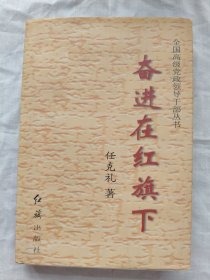 全国高级党政领导干部丛书
奋进在红旗下
任克礼 著
红旗出版社